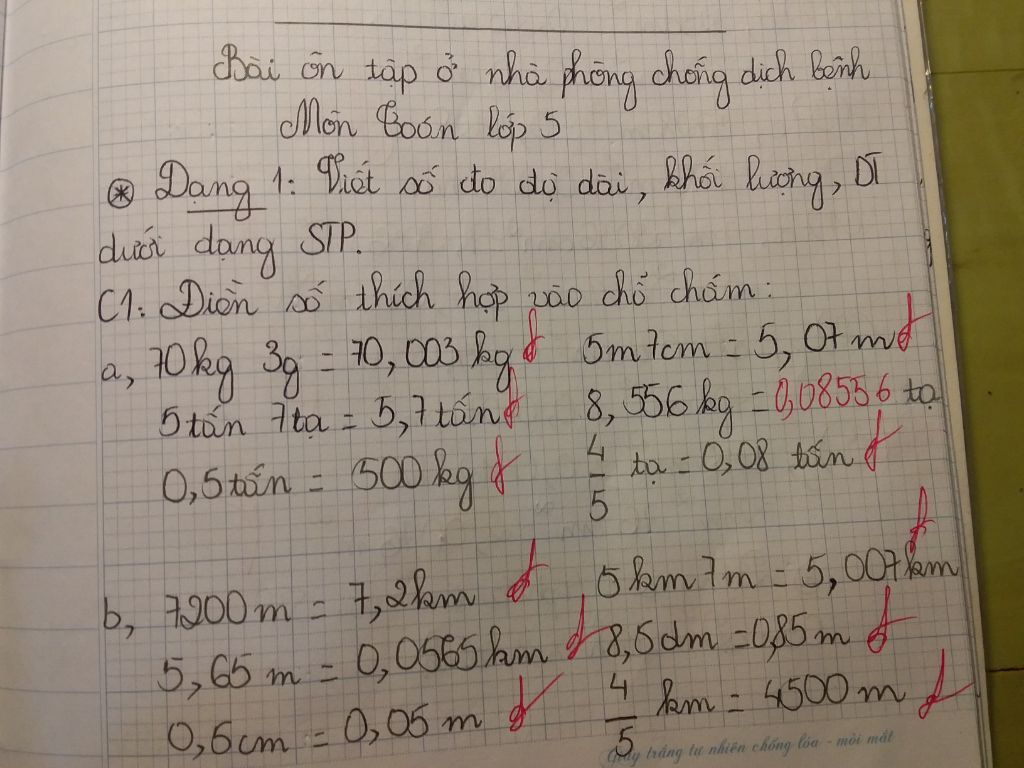 Bài ôn tập ở nhà phòng chống dịch bệnh
Môn Toán lớp 5
* Dạng 1: Viết số đo độ dài, khối lượng, DT
dưới dạng STP.
C1: Điền số thích hợp vào chỗ chấm:
a, 70kg 3g = 70,003 kg đ 5m7cm = 5,07 m đ
5 tấn 7 tạ = 5,7 tấn đ 8,556 kg = 0,08556 tạ
0,5 tấn = 500 kg đ 4/5 tạ = 0,08 tấn đ
b, 7200 m = 7,2 km đ 5 km 7 m = 5,007 km đ
5,65 m = 0,0565 km đ 8,5 dm = 0,85 m đ
0,5 cm = 0,05 m đ 4/5 km = 4500 m đ
Giấy trắng tự nhiên chống lóa - mỏi mắt